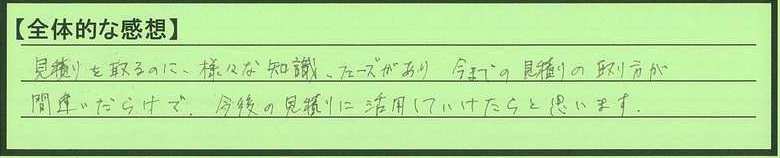 【全体的な感想】
見積りを取るのに、様々な知識、フェーズがあり 今までの見積りの取り方が
間違いだらけで、今後の見積りに活用していけたらと思います.